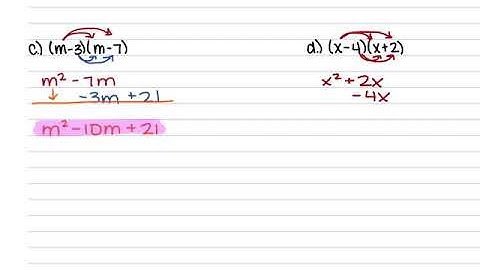 c.) (m-3)(m-7)
m² - 7m
-3m + 21
m² - 10m + 21
d.) (x-4)(x+2)
x² + 2x
-4x